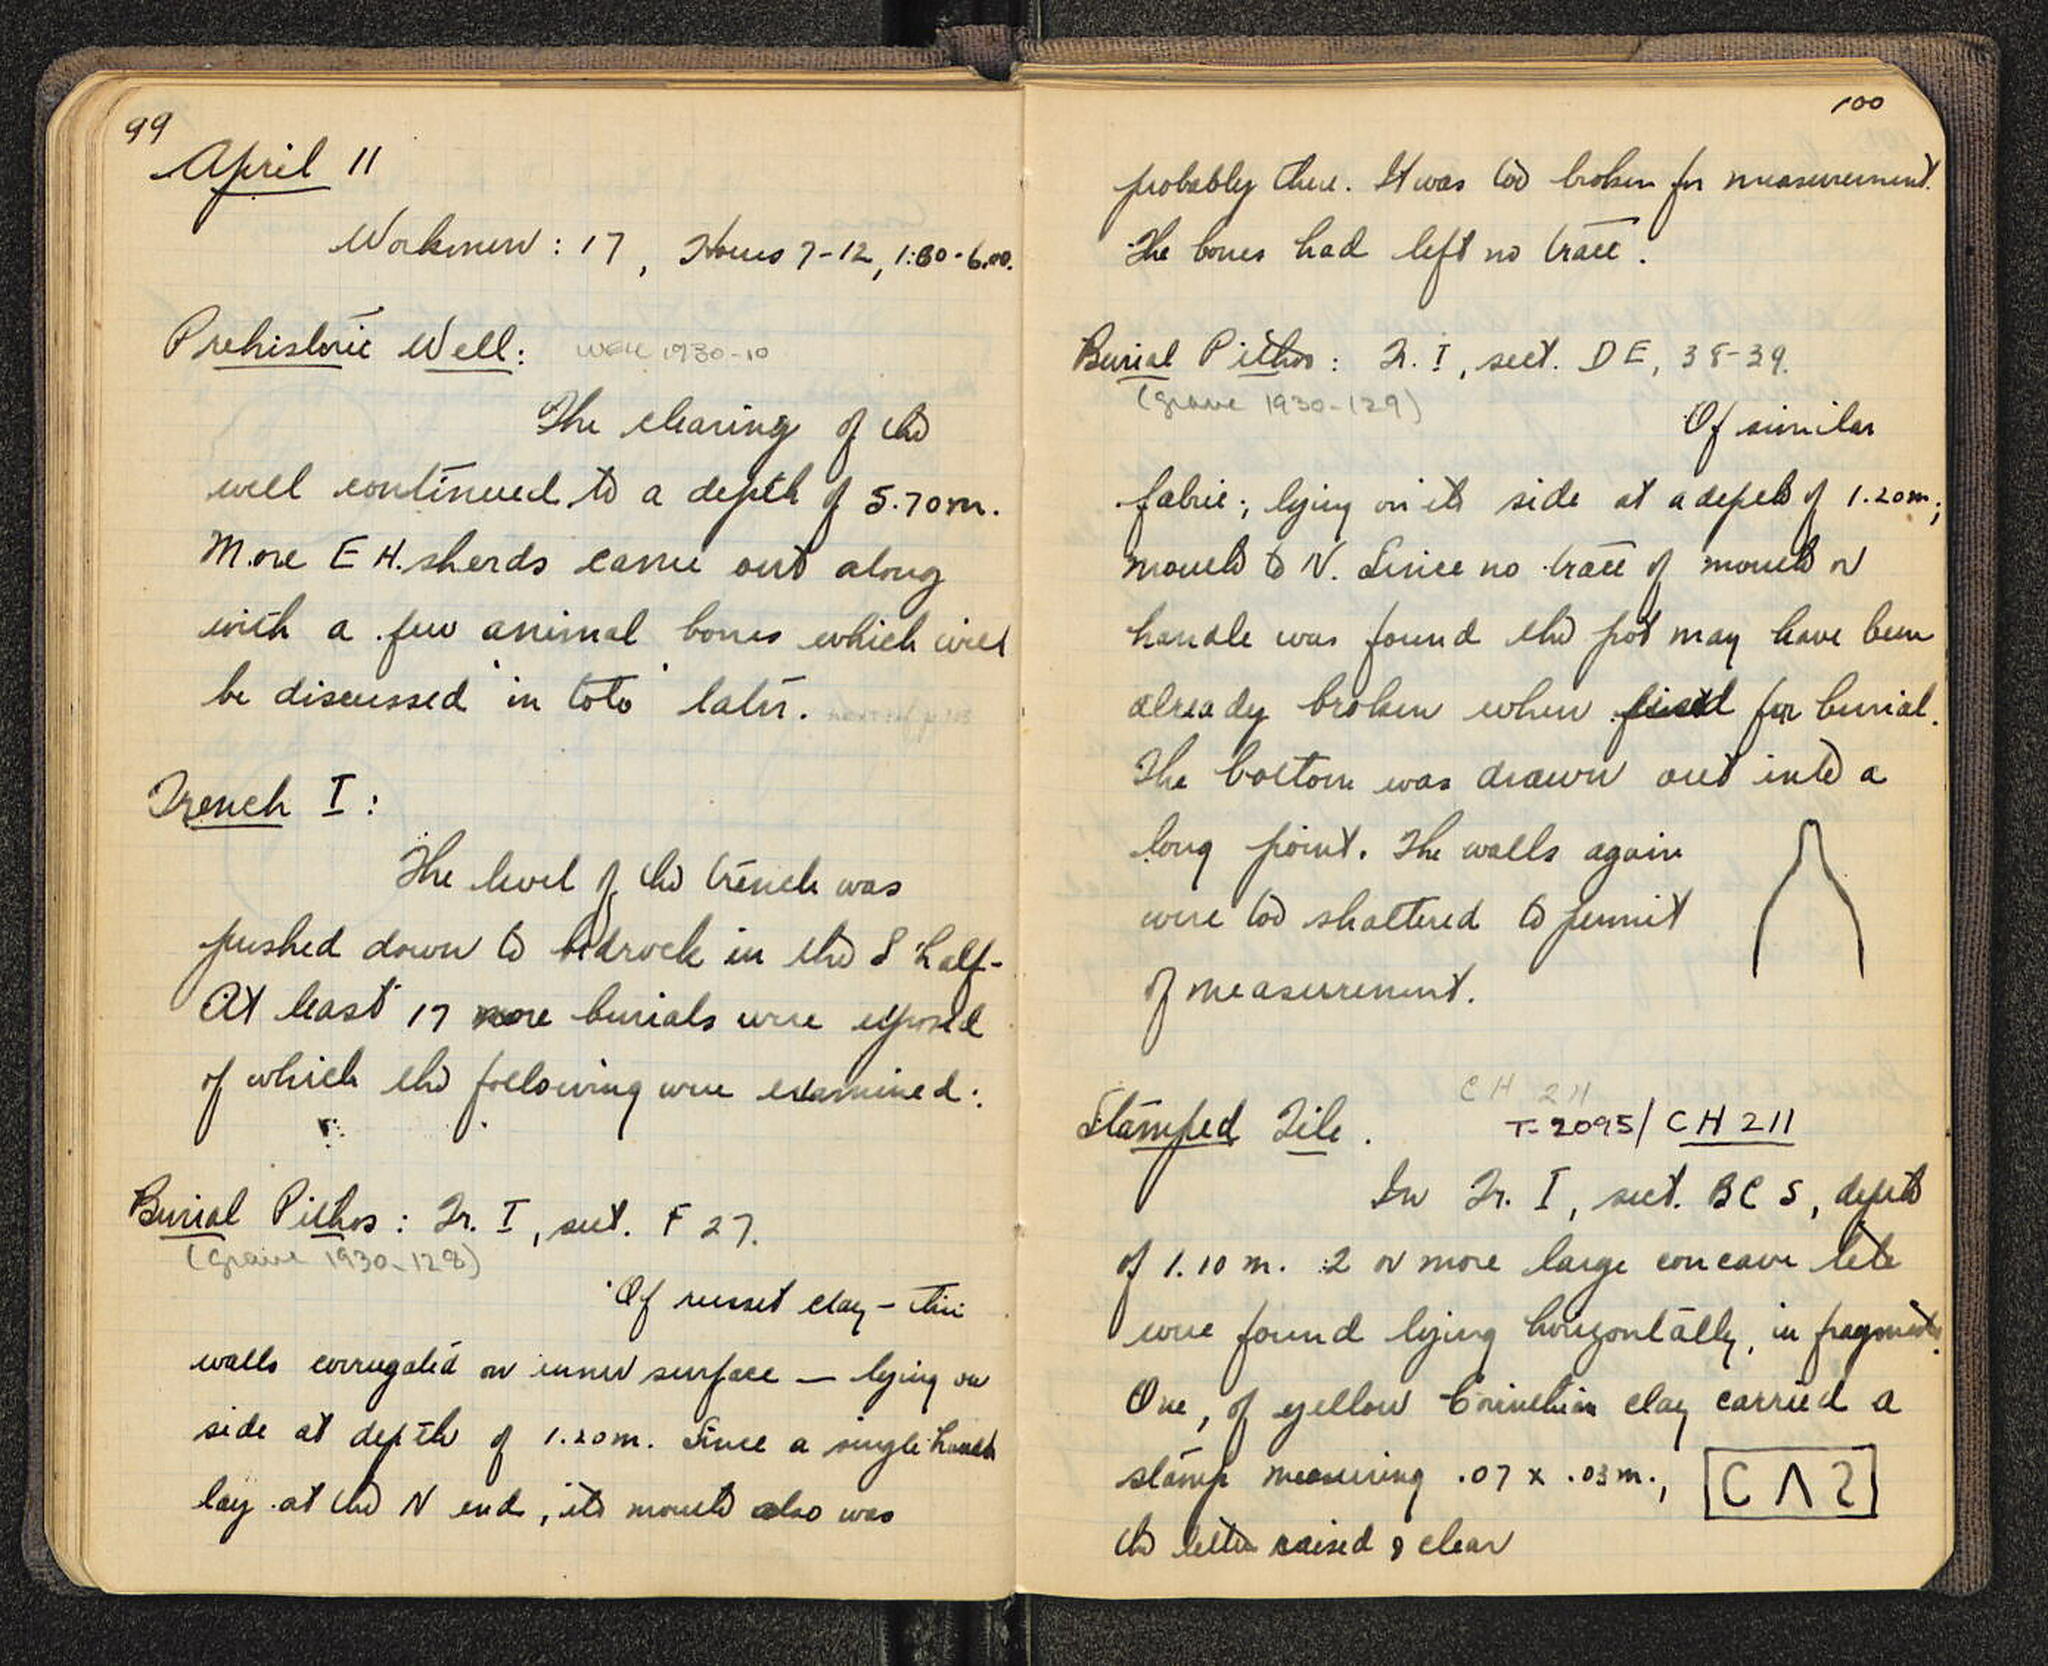 99
April 11
Workmen: 17, Hours 7-12, 1:30-6.00.
Prehistoric Well: Well 1930-10
The clearing of the
well continued to a depth of 5.70 m.
More E H. sherds came out along
with a few animal bones which will
be discussed "in toto" later.
Trench I:
The level of the trench was
pushed down to bedrock in the S half-
At least 17 more burials were exposed
of which the following were examined:
Burial Pithos: Tr. I, sect. F 27.
(Grave 1930-128)
Of russet clay - thin
walls corrugated on inner surface — lying on
side at depth of 1.20 m. Since a single handle
lay at the N end, its mouth also was
100
probably there. It was too broken for measurement.
The bones had left no trace.
Burial Pithos: Tr. I, sect. DE, 38-39.
(grave 1930-129)
Of similar
fabric; lying on its side at a depth of 1.20 m;
mouth to N. Since no trace of mouth or
handle was found the pot may have been
already broken when used for burial.
The bottom was drawn out into a
long point. The walls again
were too shattered to permit
of measurement.
CH 211
Stamped Tile. T-2095/ CH 211
In Tr. I, sect. BC 5, depth
of 1.10 m. 2 or more large concave tile
were found lying horizontally, in fragments.
One, of yellow Corinthian clay carried a
stamp measuring .07 x .03 m.,
the letters raised & clear